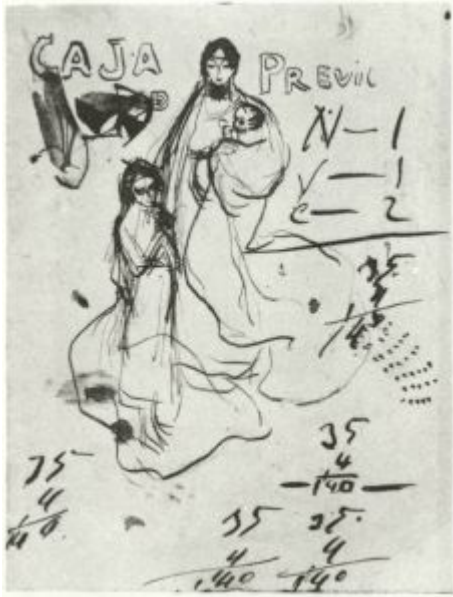 CAJA PREVIC
N—1
V—1
C—2
35
35
4
140
35
4
140
35
4
140
35
4
140